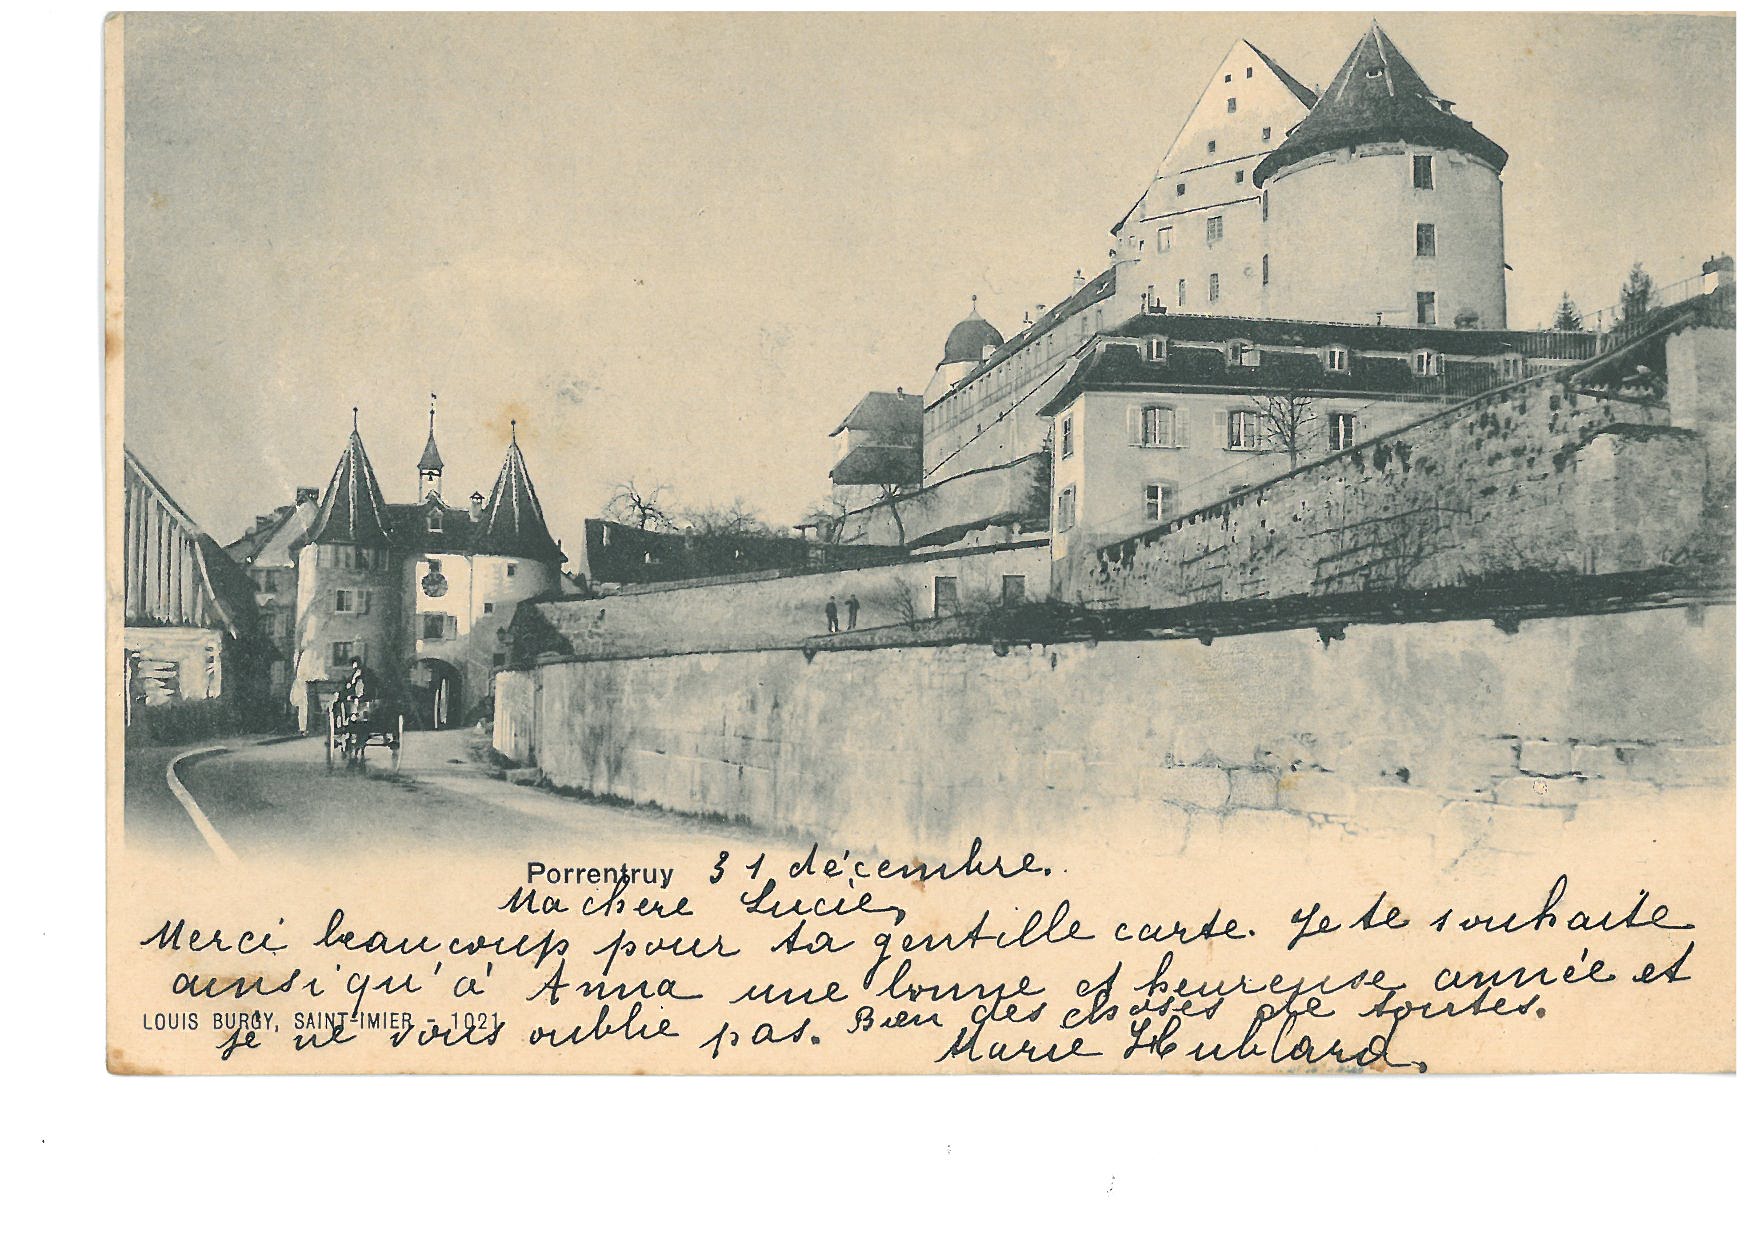 Porrentruy 31 décembre.
Ma chère Lucie,
Merci beaucoup pour ta gentille carte. Je te souhaite
ainsi qu'à Anna une bonne et heureuse année et
je ne vous oublie pas. Bien des choses de toutes.
Marie Hublard.
LOUIS BURGY, SAINT-IMIER - 1021